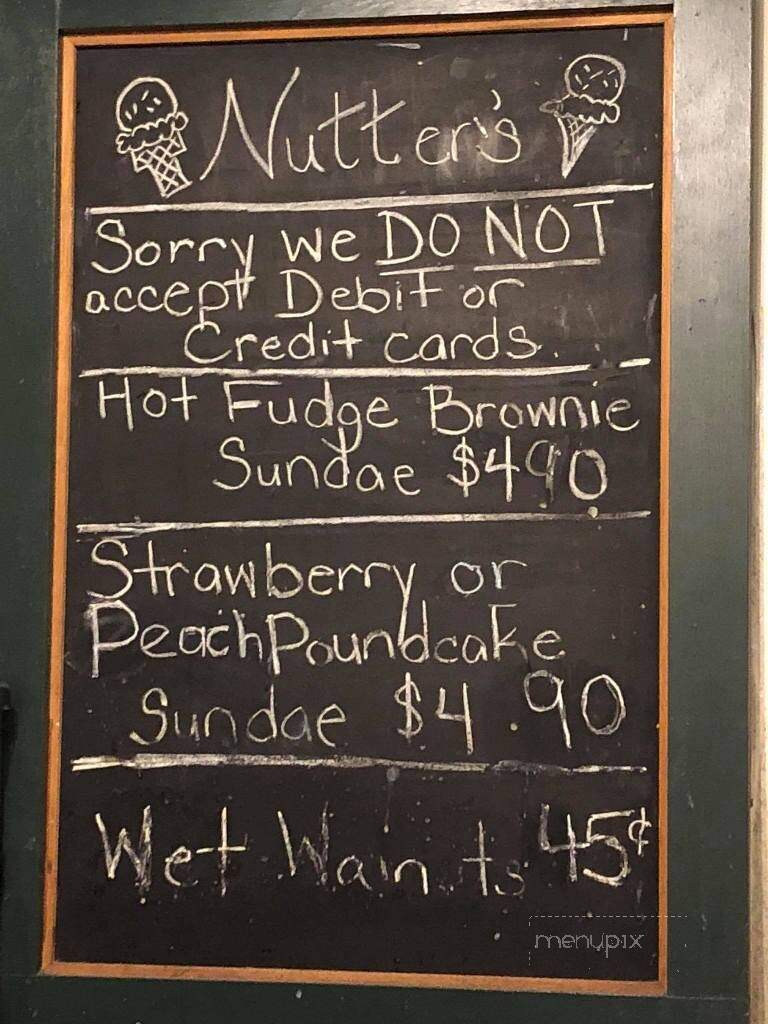 Nutter's
Sorry we DO NOT
accept Debit or
Credit cards.
Hot Fudge Brownie
Sundae $490
Strawberry or
Peach Poundcake
Sundae $4.90
Wet Walnuts 45¢
menupix